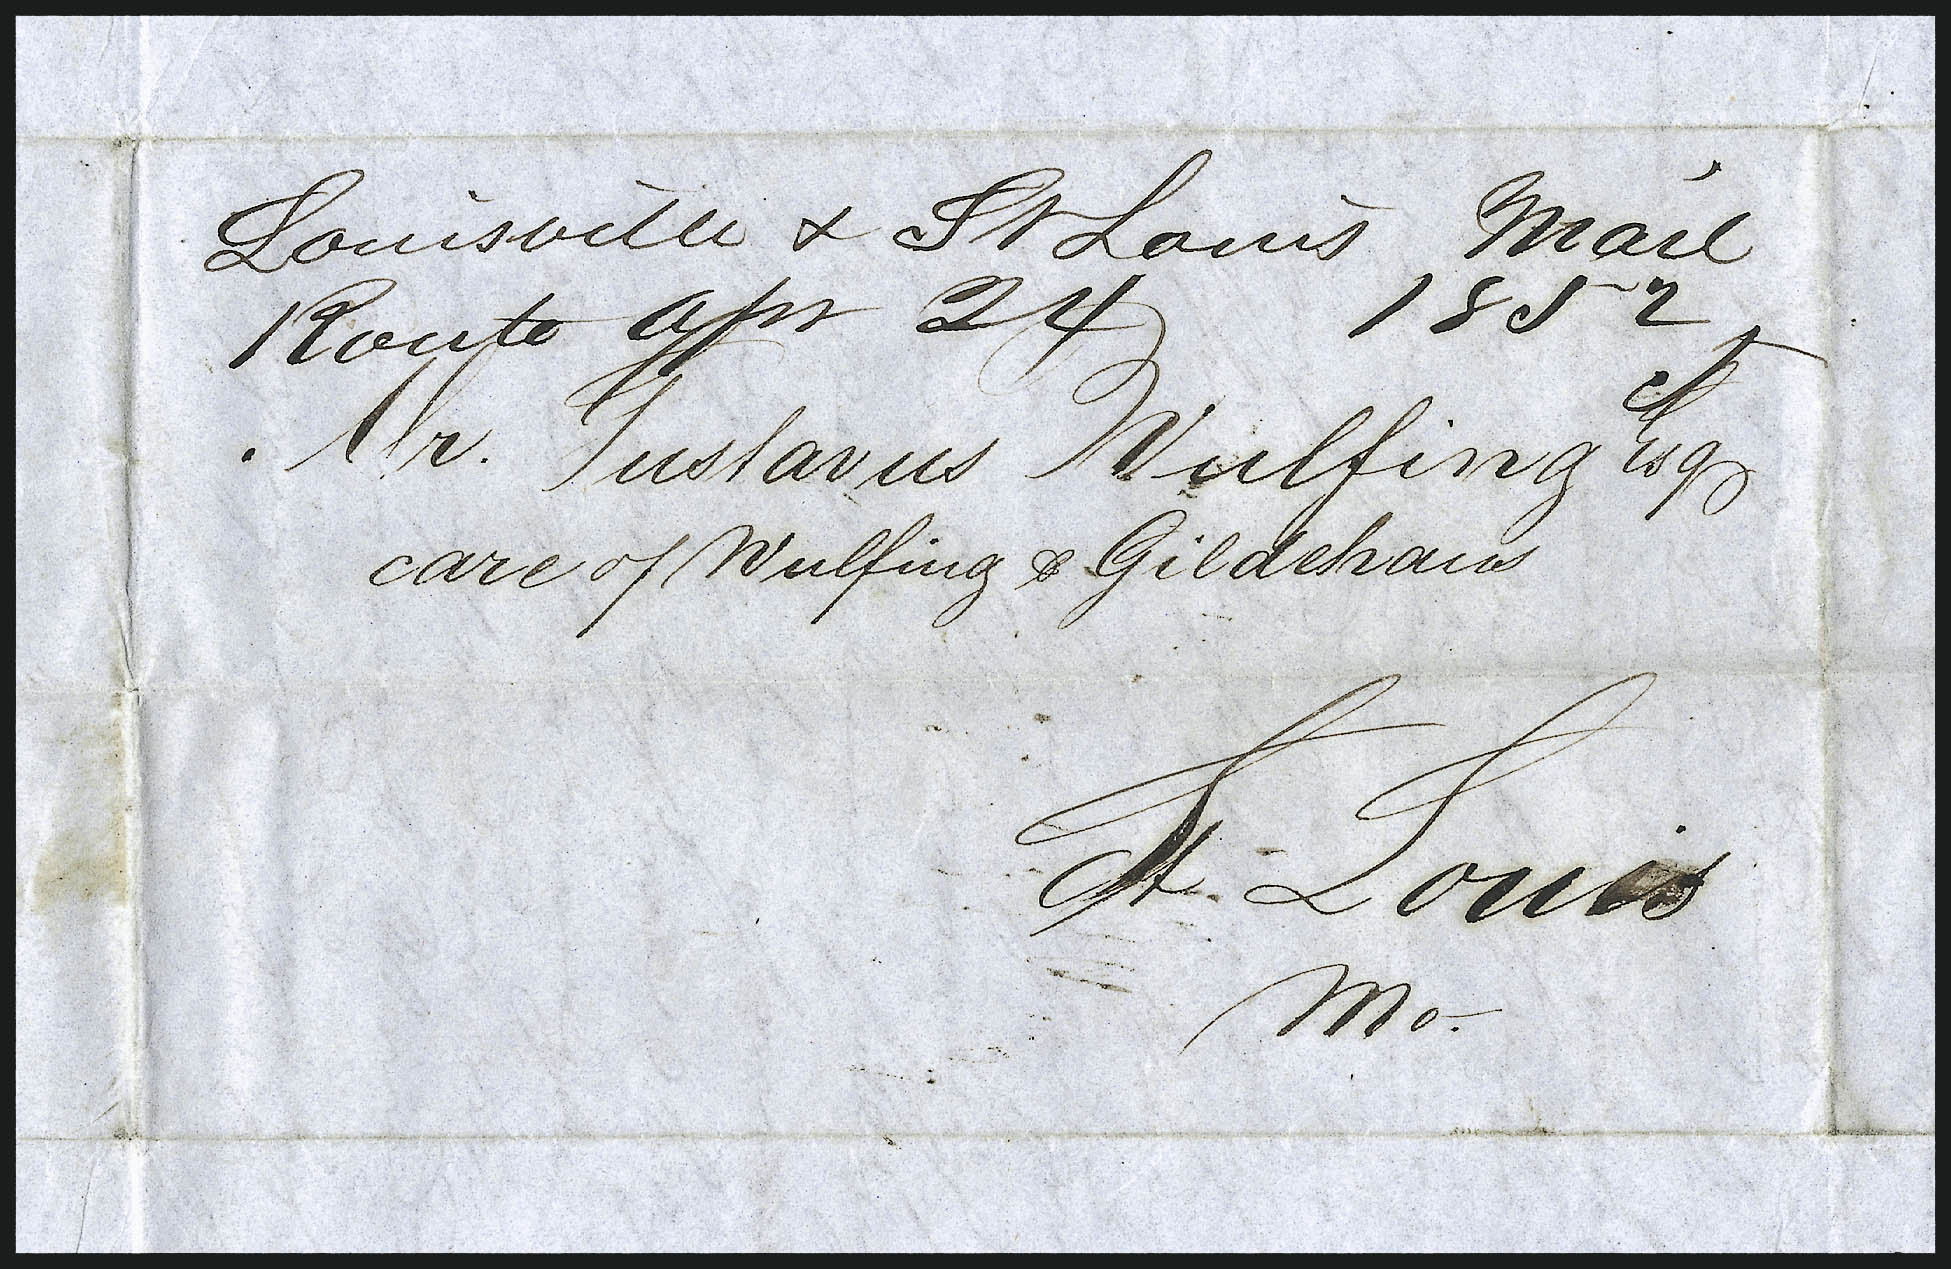 Louisville & St Louis Mail
Route Apr 24 1852
Mr. Gustavus Wulfing Esq
care of Wulfing & Gildehaus
St. Louis
Mo.